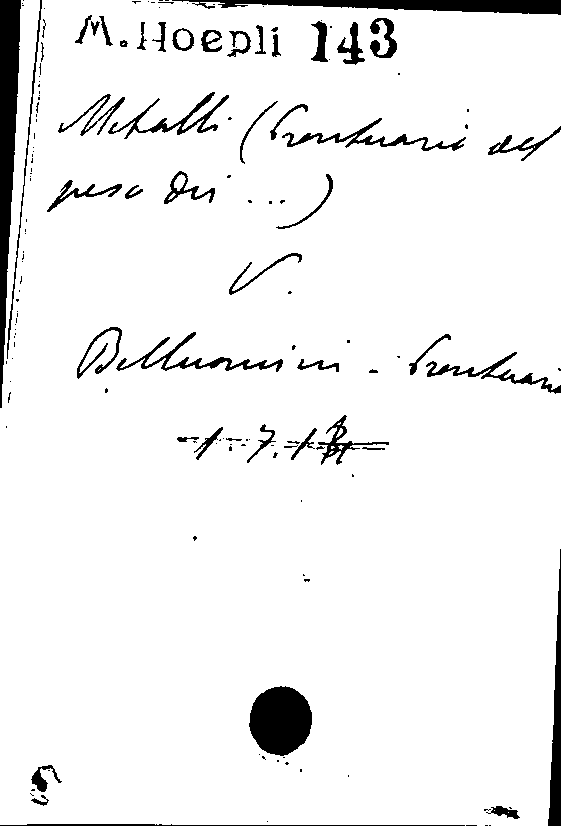 M. Hoepli 143
Metalli (Prontuario del
peso dei ...)
V.
Belluomini - Prontuario